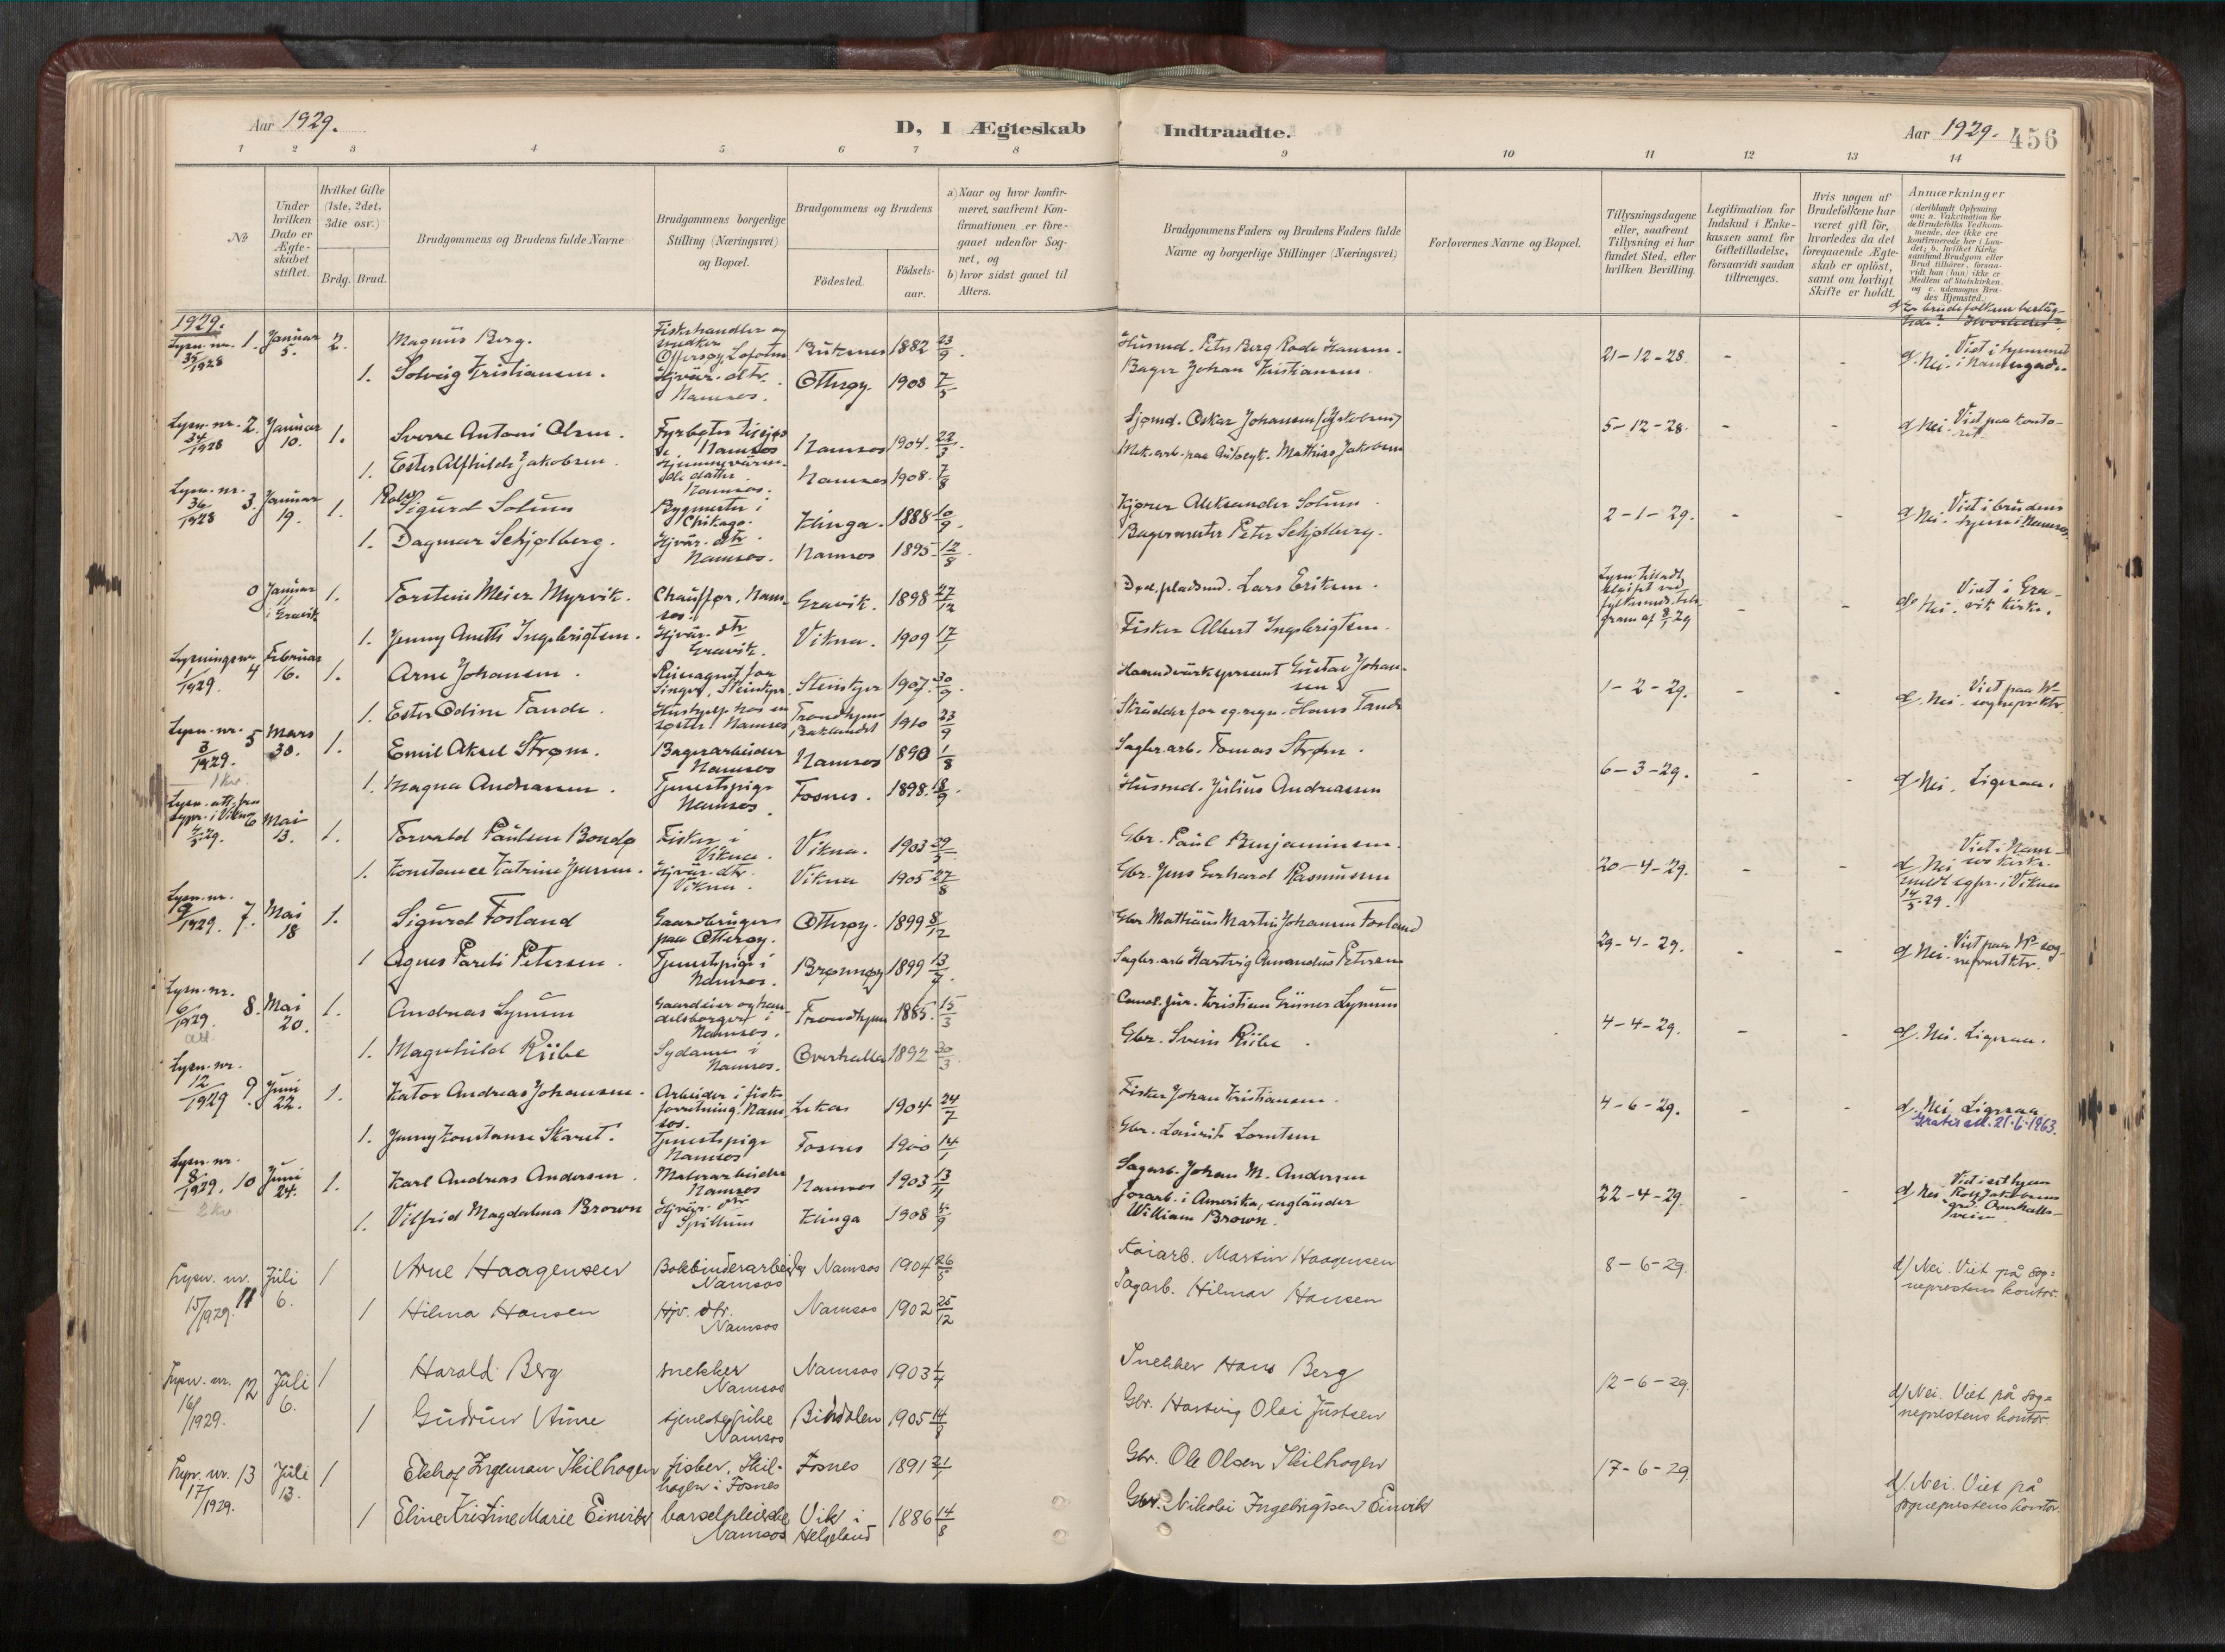 Aar 1929.
D, I Ægteskab
Indtraadte.
Aar 1929.
456
1 2 3 4 5 6 7 8
9 10 11 12 13 14
No
Under hvilken Dato er Ægte-skabet stiftet.
Hvilket Gifte (1ste, 2det, 3die osv.)
Brdg. Brud.
Brudgommens og Brudens fulde Navne
Brudgommens borgerlige Stilling (Næringsvei) og Bopæl.
Brudgommens og Brudens
Födested.
Födsels-aar.
a) Naar og hvor konfir-meret, saafremt Kon-firmationen er fore-gaaet udenfor Sog-net, og
b) hvor sidst gaaet til Alters.
Brudgommens Faders og Brudens Faders fulde Navne og borgerlige Stillinger (Næringsvei)
Forlovernes Navne og Bopæl.
Tillysningsdagene eller, saafremt Tillysning ei har fundet Sted, efter hvilken Bevilling.
Legitimation for Indskud i Enke-kassen samt for Giftetilladelse, forsaavidt saadan tiltrænges.
Hvis nogen af Brudefolkene har været gift för, hvorledes da det foregaaende Ægte-skab er oplöst, samt om lovligt Skifte er holdt.
Anmærkninger
(deriblandt Oplysning om: a. Vakcination for de Brudefolks Vedkom-mende, der ikke ere konfirmerede her i Lan-det; b. hvilket Kirke samfund Brudgom eller Brud tilhörer, forsaa-vidt han (hun) ikke er Medlem af Statskirken. og c. udensogns Bru-des Hjemsted.)
d. Er brudefolkene beslæg-
tede? Hvorledes?
1929.
Lysn. nr. 35/1928 1. Januar 5. 2. Magnus Berg. Fiskehandler og snedker Offersøy, Lofoten Buksnes 1882 23/9.
Husmd. Peter Berg Rode Hansen. 21-12-28. - - d. Nei. Viet i hjemmet i Havnegade.
1. Solveig Kristiansen. Hjvær. dtr. Namsos. Otterøy 1908 7/5
Bager Johan Kristiansen.
Lysn. nr. 34/1928 2. Januar 10. 1. Sverre Antoni Olsen. Namsos Namsos 1904. 22/3.
Sjømd. Oskar Johansen (Jakobsen) 5-12-28. - - d. Nei. Viet paa konto-ret.
1. Ester Alfhilde Jakobsen. datter Namsos. Namsos 1908. 7/8
Mek. arb. paa Mathias Jakobsen
Lysn. nr. 36/1928 3. Januar 19. 1. Rolf Sigurd Solum Bygmester i Chikago. Klinga. 1888 10/9.
Kjører Aleksander Solum. 2-1-29. - - d. Nei. Viet i brudens hjem i Namsos.
1. Dagmar Schjølberg. Hjvær. dtr. Namsos. Namsos 1895. 12/8.
Bagermester Peter Schjølberg.
0 Januar 11 i Gravik 1. Torstein Meier Myrvik. Chauffør, Nam-sos. Gravik. 1898 27/12
Død. pladsmd. Lars Eriksen. - - d. Nei. Viet i Gra-vik kirke.
1. Jenny Aneth Ingebrigtsen. Hjvær. dtr Gravik. Vikna. 1909 17/1
Fisker Albert Ingebrigtsen.
Lysningsnr 1/1929. 4 Februar 16. 1. Arne Johansen. Reiseagent for Singer, Steinkjer. Steinkjer 1907. 30/9.
Haandværkspresent Gustav Johan-sen 1-2-29. - - d. Nei. Viet paa ktr.
1. Ester Odine Tande. Namsos Trondhjem Baklandet 1910 23/9
Skrædder for eg. regn. Hans Tande
Lysn. nr. 3/1929. 5 Mars 30. 1. Emil Aksel Strøm. Bagerarbeider Namsos Namsos 1890 1/8
Sagbr. arb. Tomas Strøm. 6-3-29. - - d. Nei. Ligesaa.
1. Magna Andreassen. Tjenestepige Namsos. Fosnes. 1898. 18/9.
Husmd. Julius Andreassen
Lysn. att. fra sogpr. i Vikna 6 Mai 13. 1. Torvald Paulsen Bondø Fisker i Vikna. Vikna. 1903 29/5
Gbr. Paul Benjaminsen. 20-4-29. - - d. Nei. Viet i Nam-sos kirke. meldt sgpr. i Vikna 14/5.29.
1. Konstance Katrine Jensen. Hjvær. dtr. Vikna. Vikna 1905 27/8
Gbr. Jens Gerhard Rasmussen
Lysn. nr. 9/1929. 7. Mai 18 1. Sigurd Fosland Gaardbruger paa Otterøy. Otterøy. 1899 8/12
Gbr. Mathæus Martin Johansen Fosland 29-4-29. - - d. Nei. Viet paa sog-neprest ktr.
1 Agnes Pareli Petersen. Tjenestpige i Namsos. Brønnøy 1899 13/7.
Sagbr. arb. Hartvig Amandus Petersen
Lysn. nr. 6/1929. att 8. Mai 20. 1. Andreas Lynum Gaardeier og han-delsborger i Namsos. Trondhjem 1885. 15/3
Kristian Grüner Lynum 4-4-29. - - d. Nei. Ligesaa.
1. Magnhild Riibe Sydame i Namsos. Overhalla 1892 30/3.
Gbr. Svein Riibe.
Lysn. nr. 12/1929 9. Juni 22. 1. Kator Andreas Johansen. Arbeider i fiske forretning. Nam-sos. Lekas 1904 24/7
Fisker Johan Kristiansen. 4-6-29. - - d. Nei. Ligesaa. 21.6.1963.
1. Jenny Konstanse Skaret. Tjenestepige Namsos Fosnes 1900 14/1
Gbr. Laurits Lorntsen
Lysn. nr. 8/1929. 2 kr 10 Juni 24. 1. Karl Andreas Andersen. Malerarbeider Namsos Namsos 1903 13/11
Sagarb. Johan M. Andersen 22-4-29. - - d. Nei Viet i eit hjem Rolf Jakobsens grd. Overhalls-veien
1. Vilfrid Magdalena Brown Hjvær. dtr Spillum Klinga 1908 4/9
forarb. i Amerika, engländer William Brown.
Lysn. nr. 15/1929. 11 Juli 6. 1 Arne Haagensen Bokbinderarbeider Namsos Namsos 1904 26/5
Kaiarb. Martin Haagensen 8-6-29. d/ Nei. Viet på sog=neprestens kontor.
1 Hilma Hansen Hjv. dtr. Namsos Namsos 1902 25/12
Sagarb. Hilmar Hansen
Lysn. nr. 16/1929. 12 Juli 6. 1 Harald Berg snekker Namsos Namsos 1903 1/7
Snekker Hans Berg 12-6-29. d/ Nei. Viet på sog=neprestens kontor.
1 Gudrun Aune tjenestepike Namsos Bindalen 1905 14/8
Gbr. Hartvig Olai Justsen
Lysn. nr. 17/1929. 13 Juli 13. 1 Ekhof Ingeman Skilhagen fisker, Skil-hagen i Fosnes Fosnes 1891 21/7
Gbr. Ole Olsen Skilhagen 17-6-29. d/. Nei. Viet på sogneprestens kontor.
1 Eline Kristine Marie Einvik barselpleierske Namsos Vik i Helgeland 1886 14/8
Gbr. Nikolai Ingebrigtsen Einvik